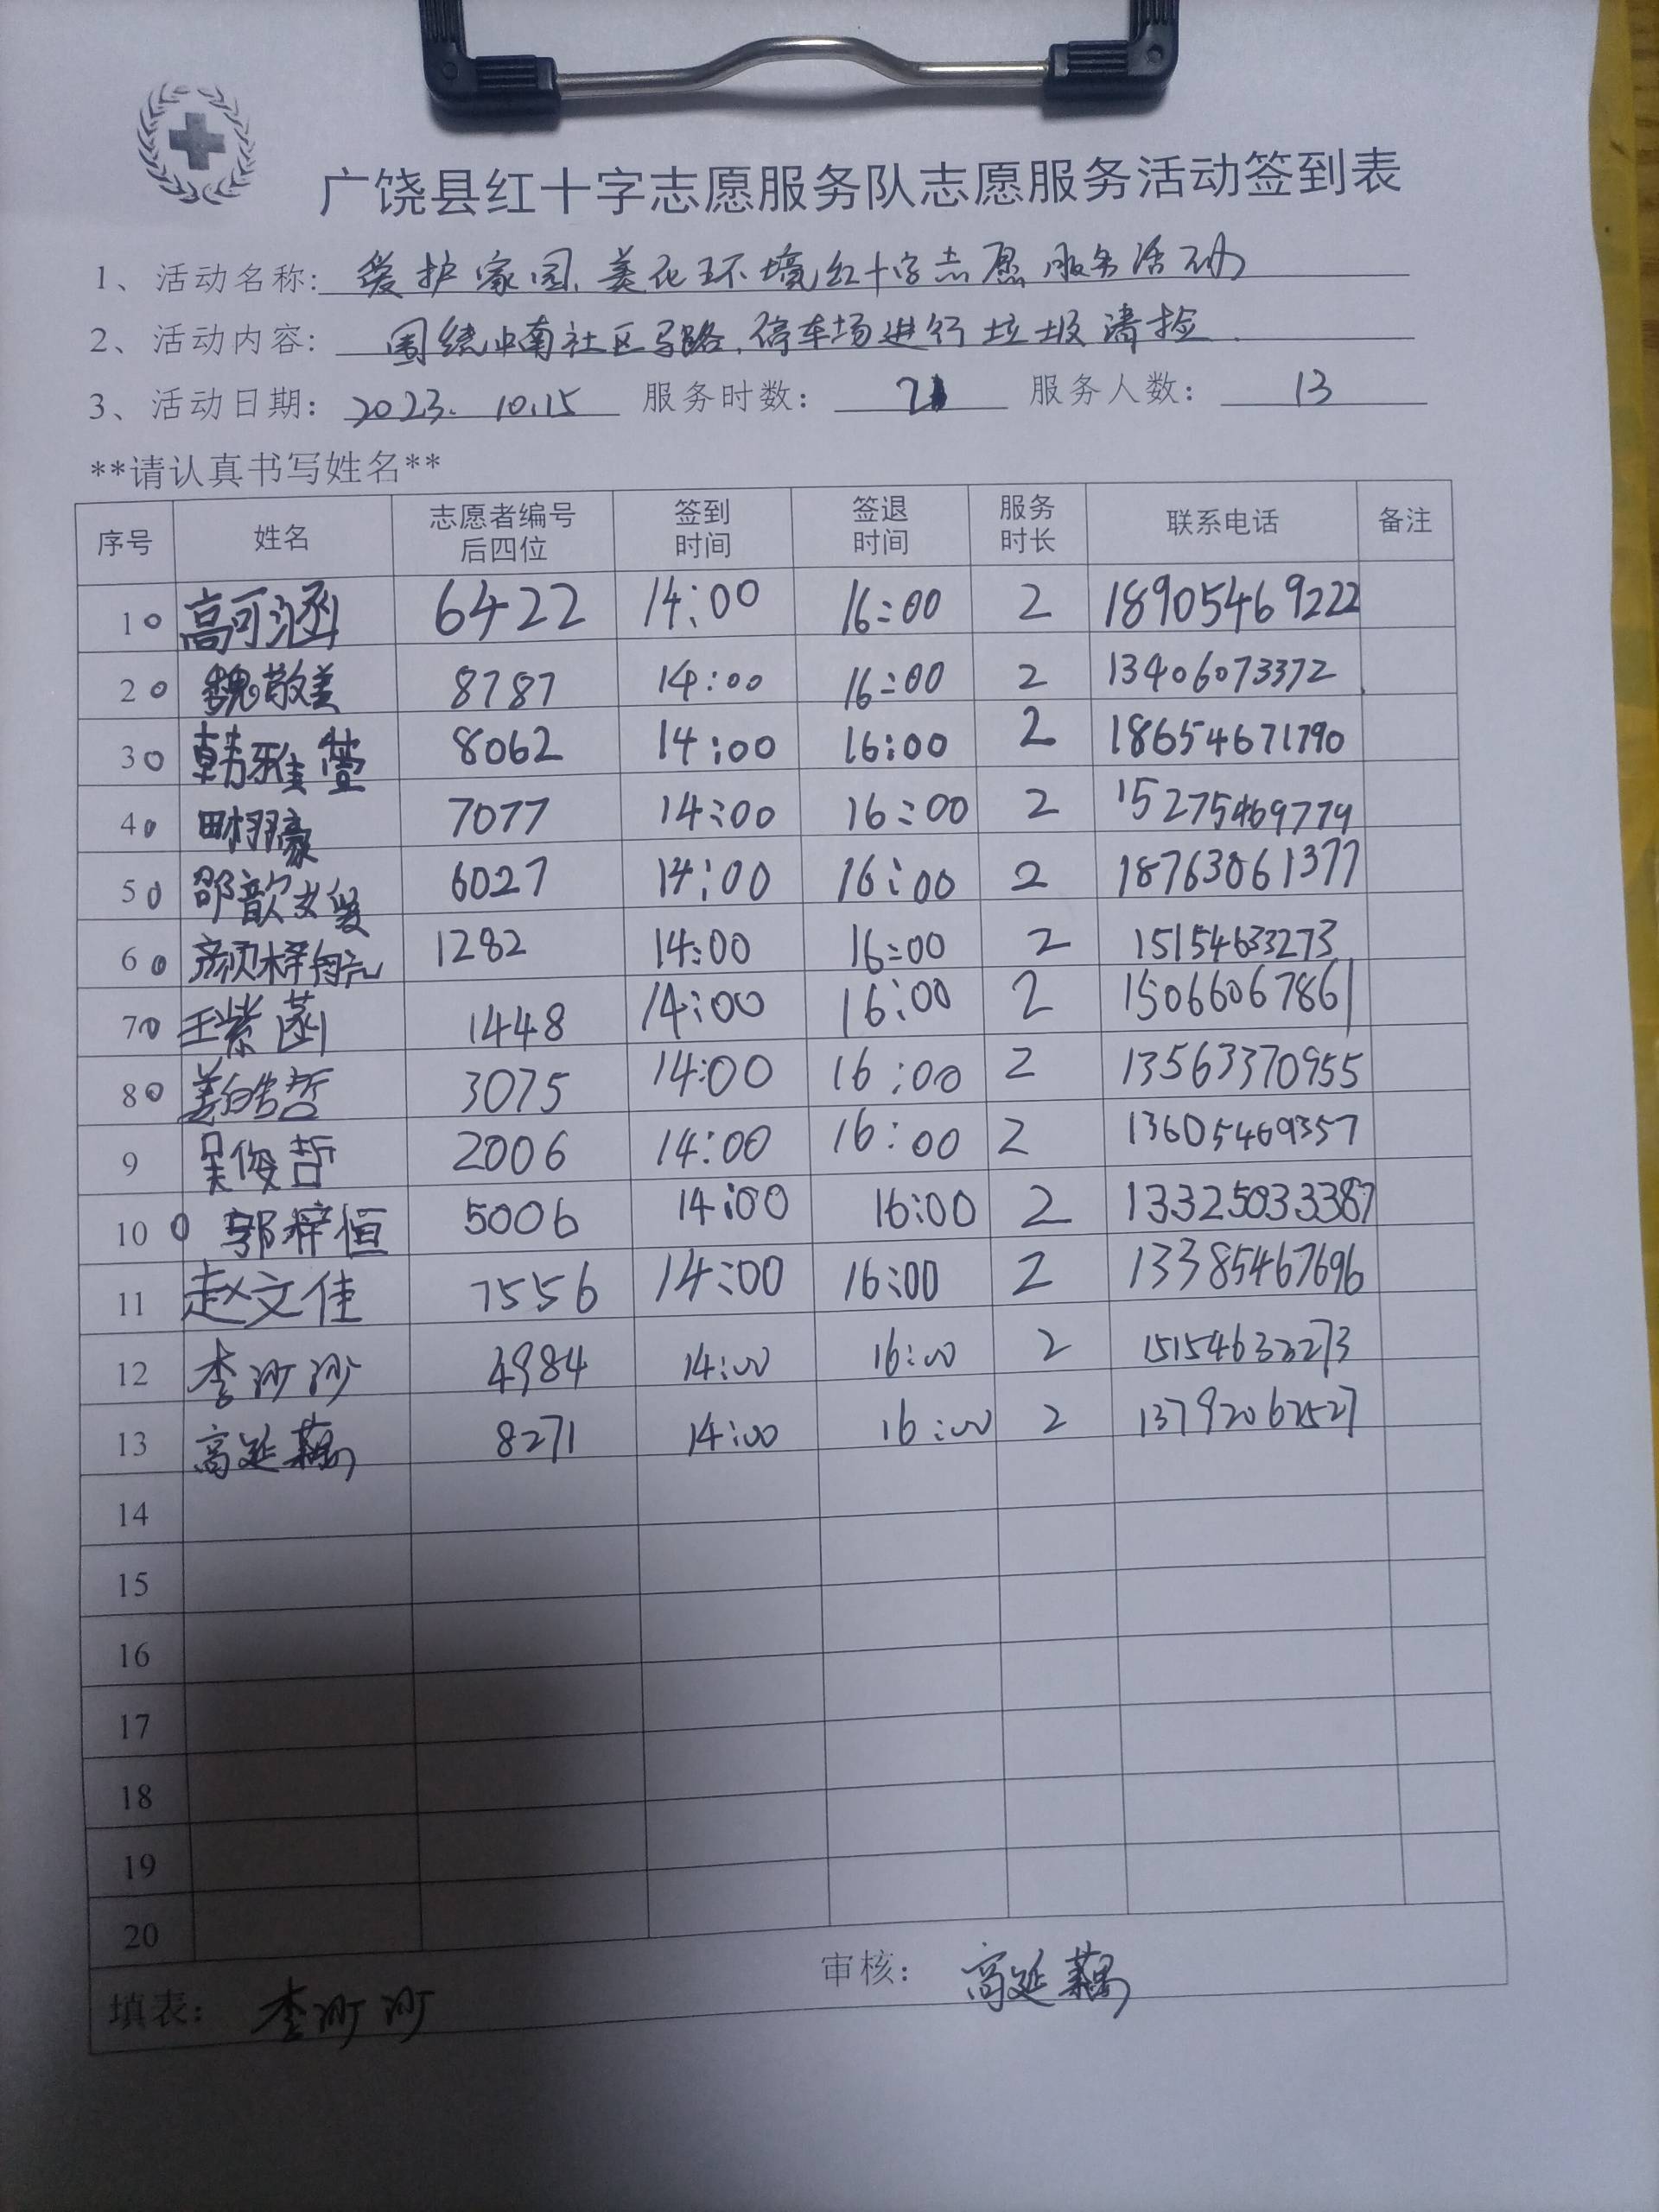 广饶县红十字志愿服务队志愿服务活动签到表
1、活动名称: 爱护家园、美化环境红十字志愿服务活动
2、活动内容: 围绕中南社区马路、停车场进行垃圾清捡.
3、活动日期: 2023. 10.15 服务时数: 2 服务人数: 13
**请认真书写姓名**
序号 姓名 志愿者编号后四位 签到时间 签退时间 服务时长 联系电话 备注
1 高可涵 6422 14:00 16:00 2 18905469222
2 魏敬美 8787 14:00 16:00 2 13406073372
3 韩雅萱 8062 14:00 16:00 2 18654671790
4 田栩豪 7077 14:00 16:00 2 15275469779
5 邵歆媛 6027 14:00 16:00 2 18763061377
6 颜梓航 1282 14:00 16:00 2 15154633273
7 王紫菡 1448 14:00 16:00 2 15066067861
8 姜皓哲 3075 14:00 16:00 2 13563370955
9 吴俊哲 2006 14:00 16:00 2 13605469357
10 郭梓恒 5006 14:00 16:00 2 13325033387
11 赵文佳 7556 14:00 16:00 2 13385467696
12 李沙沙 4984 14:00 16:00 2 15154633273
13 高延藕 8271 14:00 16:00 2 13792062527
14
15
16
17
18
19
20
填表: 李沙沙 审核: 高延藕